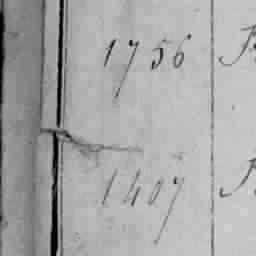 1756
1407